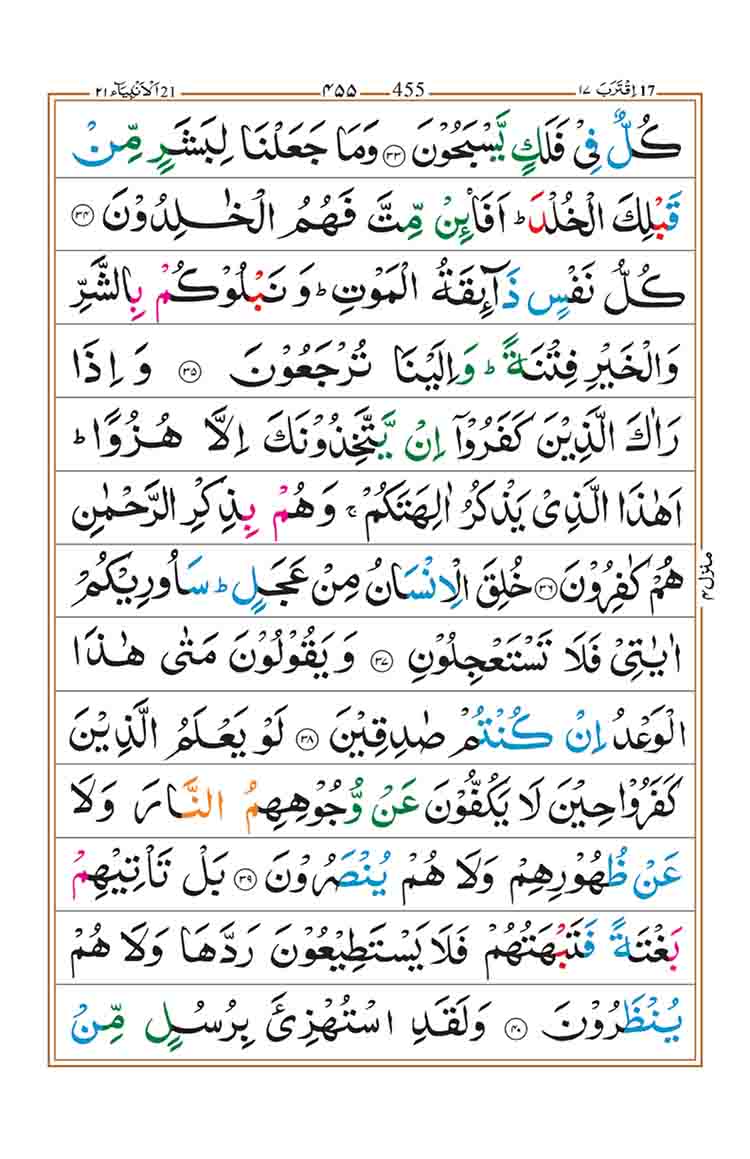 اِقْتَرَبَ ١٧ 17 ۴۵۵ 455 اَلْاَنْۢبِيَآء ٢١ 21
كُلٌّ فِیْ فَلَكٍ یَّسْبَحُوْنَ ﴿۳۳﴾ وَمَا جَعَلْنَا لِبَشَرٍ مِّنْ
قَبْلِكَ الْخُلْدَ ؕ اَفَا۟ئِنْ مِّتَّ فَهُمُ الْخٰلِدُوْنَ ﴿۳۴﴾
كُلُّ نَفْسٍ ذَآئِقَةُ الْمَوْتِ ؕ وَ نَبْلُوْكُمْ بِالشَّرِّ
وَالْخَیْرِ فِتْنَةً ؕ وَاِلَیْنَا تُرْجَعُوْنَ ﴿۳۵﴾ وَ اِذَا
رَاٰكَ الَّذِیْنَ كَفَرُوْۤا اِنْ یَّتَّخِذُوْنَكَ اِلَّا هُزُوًا ؕ
اَهٰذَا الَّذِیْ یَذْكُرُ اٰلِهَتَكُمْ ۚ وَ هُمْ بِذِكْرِ الرَّحْمٰنِ
هُمْ كٰفِرُوْنَ ﴿۳۶﴾ خُلِقَ الْاِنْسَانُ مِنْ عَجَلٍ ؕ سَاُورِیْكُمْ
اٰیٰتِیْ فَلَا تَسْتَعْجِلُوْنِ ﴿۳۷﴾ وَ یَقُوْلُوْنَ مَتٰی هٰذَا
الْوَعْدُ اِنْ كُنْتُمْ صٰدِقِیْنَ ﴿۳۸﴾ لَوْ یَعْلَمُ الَّذِیْنَ
كَفَرُوْا حِیْنَ لَا یَكُفُّوْنَ عَنْ وُّجُوْهِهِمُ النَّارَ وَلَا
عَنْ ظُهُوْرِهِمْ وَلَا هُمْ یُنْصَرُوْنَ ﴿۳۹﴾ بَلْ تَاْتِیْهِمْ
بَغْتَةً فَتَبْهَتُهُمْ فَلَا یَسْتَطِیْعُوْنَ رَدَّهَا وَلَا هُمْ
یُنْظَرُوْنَ ﴿۴۰﴾ وَلَقَدِ اسْتُهْزِئَ بِرُسُلٍ مِّنْ
منزل ۴